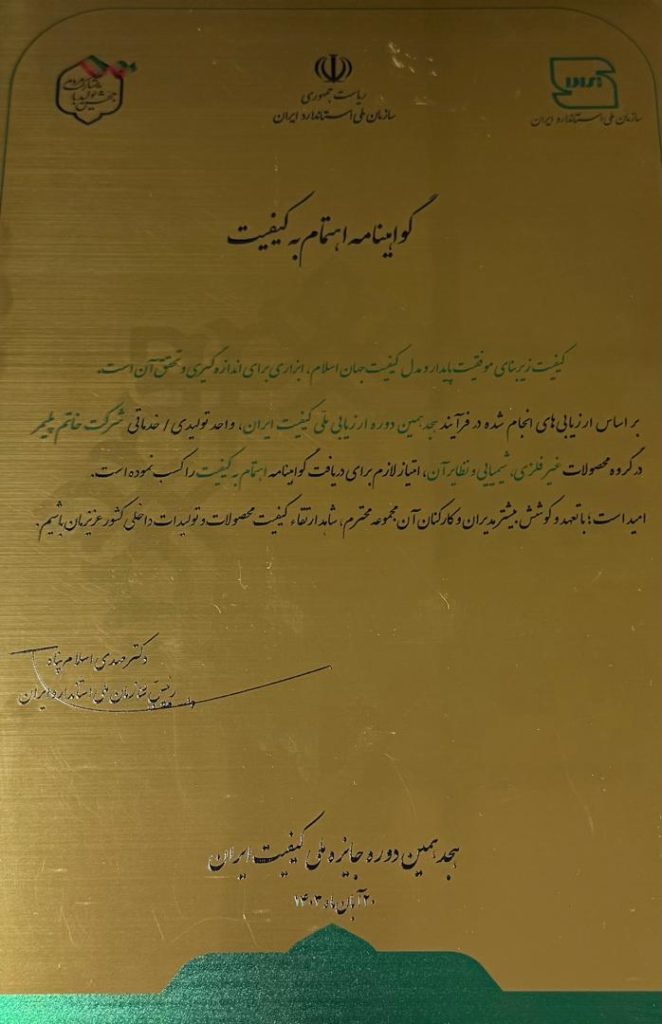 جهش تولید با مشارکت مردم
ریاست جمهوری
سازمان ملی استاندارد ایران
سازمان ملی استاندارد ایران
گواهینامه اهتمام به کیفیت
کیفیت زیربنای موفقیت پایدار و مدل کیفیت جهان اسلام، ابزاری برای اندازه گیری و تحقق آن است.
بر اساس ارزیابی های انجام شده در فرآیند هجدهمین دوره ارزیابی ملی کیفیت ایران، واحد تولیدی / خدماتی شرکت خاتم پلیمر
در گروه محصولات غیر فلزی، شیمیایی و نظایر آن، امتیاز لازم برای دریافت گواهینامه اهتمام به کیفیت را کسب نموده است.
امید است؛ با تعهد و کوشش بیشتر مدیران و کارکنان آن مجموعه محترم، شاهد ارتقاء کیفیت محصولات و تولیدات داخلی کشور عزیزمان باشیم.
دکتر مهدی اسلام پناه
رئیس سازمان ملی استاندارد ایران
هجدهمین دوره جایزه ملی کیفیت ایران
۲۰ آبان ماه ۱۴۰۳